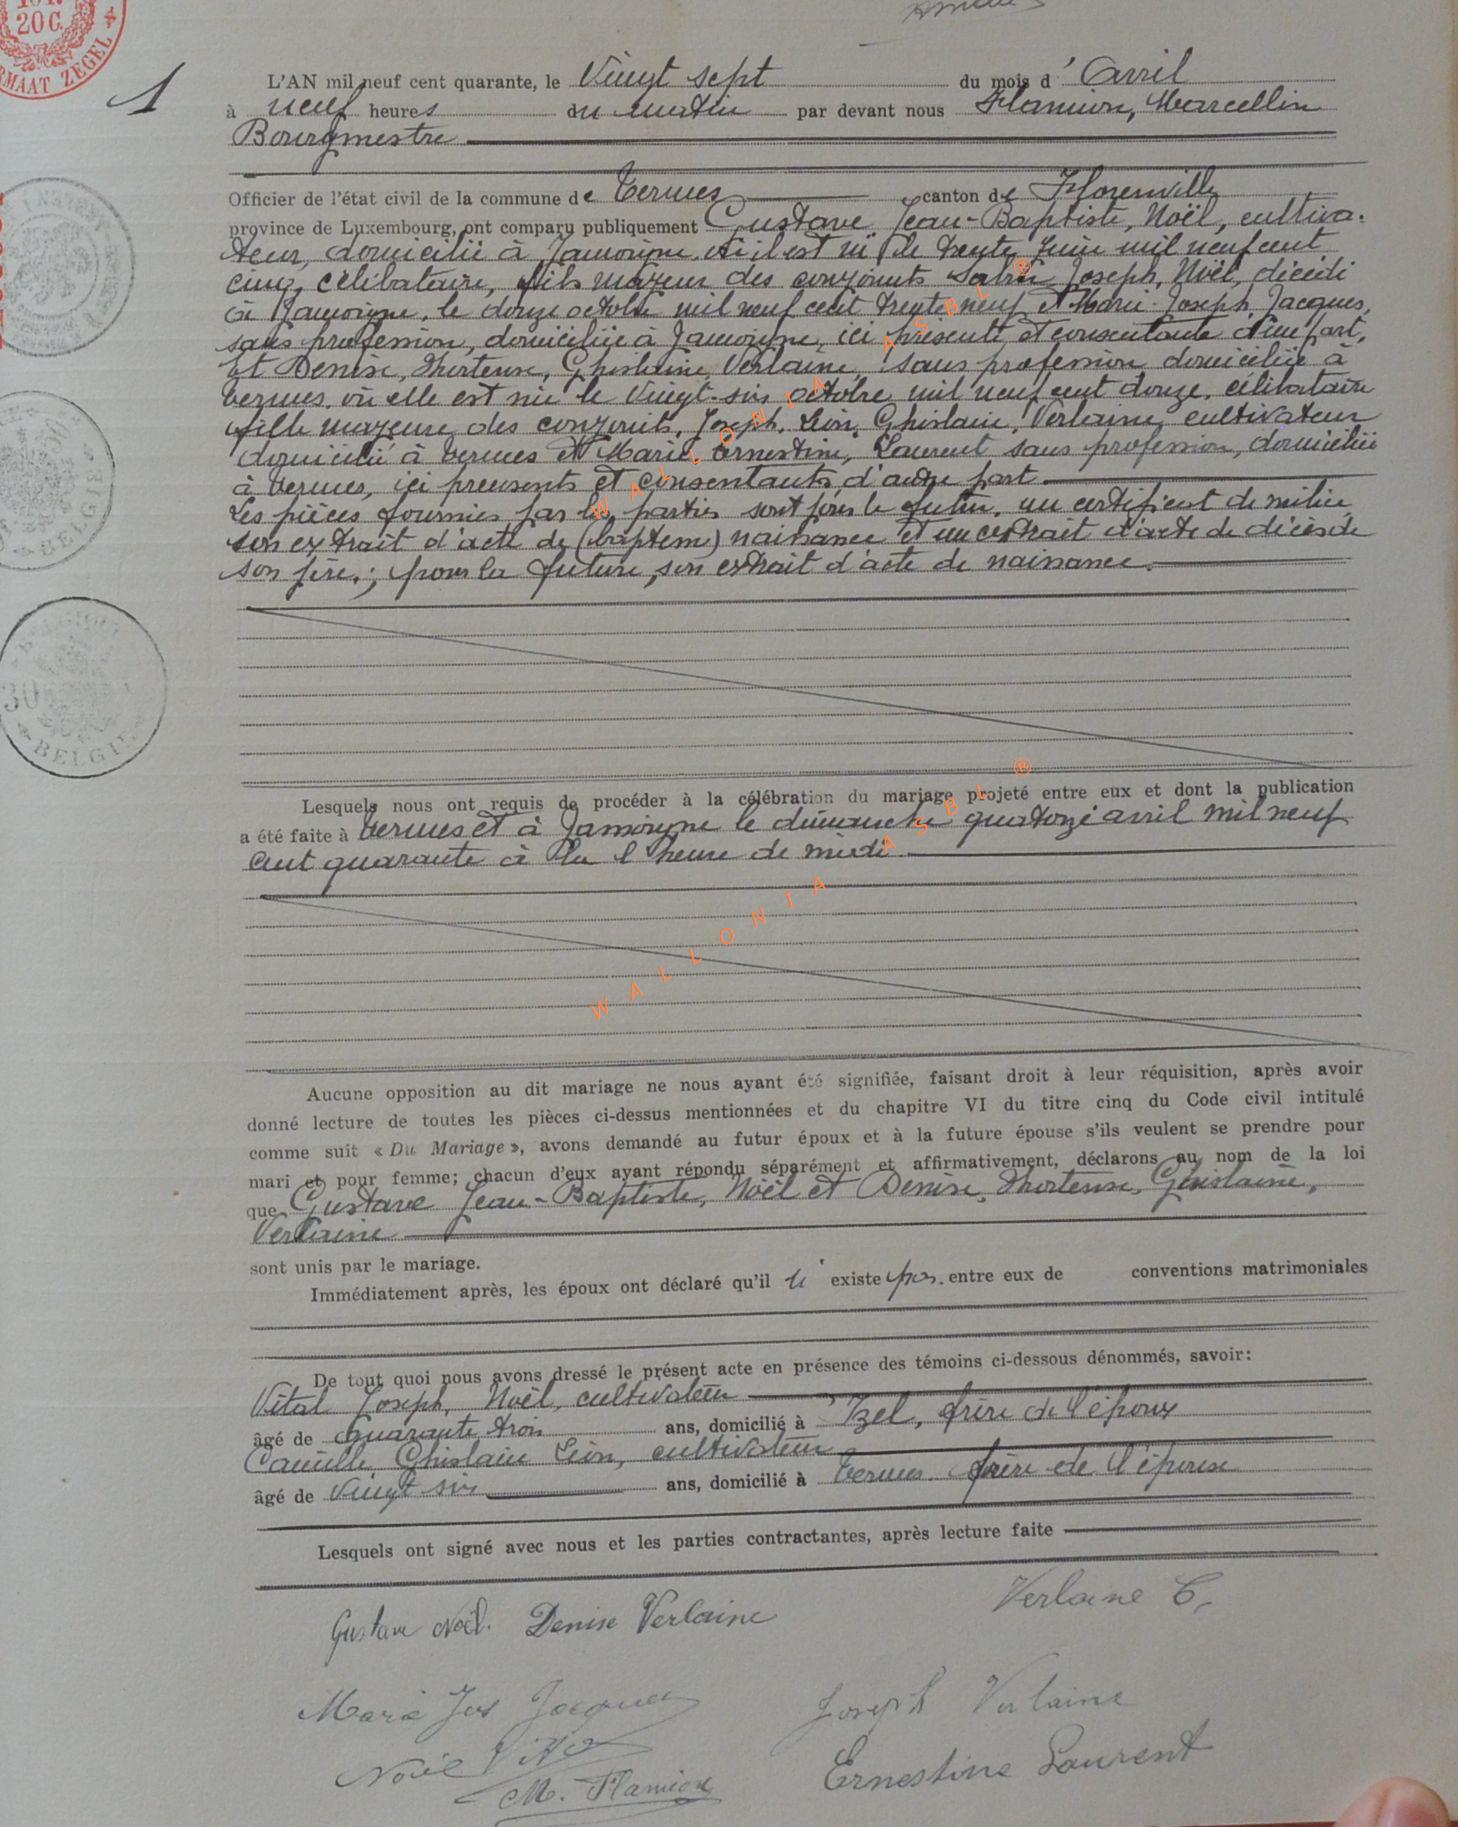 20 C.
RMAAT ZEGEL
1
L'AN mil neuf cent quarante, le Vingt sept du mois d' Avril
à neuf heures du matin par devant nous Flamion, Marcellin
Bourgmestre
Officier de l'état civil de la commune de Termes canton de Florenville
province de Luxembourg, ont comparu publiquement Gustave Jean-Baptiste, Noël, cultiva-
teur, domicilié à Jamoigne où il est né le trente Juin mil neuf cent
cinq, célibataire, fils majeur des conjoints Joseph, Noël, décédé
à Jamoigne, le douze octobre mil neuf cent trente neuf et Marie-Joseph, Jacques,
sans profession, domiciliée à Jamoigne, ici présente et consentante d'une part,
Et Denise, Hortense, Ghislaine, Verlaine, sans profession domiciliée à
Termes, où elle est née le Vingt-six octobre mil neuf cent douze, célibataire
fille majeure des conjoints, Joseph, Léon, Ghislain, Verlaine, cultivateur
domicilié à Termes et Marie, Ernestine, Laurent sans profession, domiciliée
à Termes, ici presents et consentants d'autre part
Les pièces fournies par les parties sont pour le futur, un certificat de milice
son extrait d'acte de (baptême) naissance et un extrait d'acte de décès de
son père; pour la future, son extrait d'acte de naissance.
BELGIE
Lesquels nous ont requis de procéder à la célébration du mariage projeté entre eux et dont la publication
a été faite à Termes et à Jamoigne le dimanche quatorze avril mil neuf
cent quarante à la l'heure de midi
Aucune opposition au dit mariage ne nous ayant été signifiée, faisant droit à leur réquisition, après avoir
donné lecture de toutes les pièces ci-dessus mentionnées et du chapitre VI du titre cinq du Code civil intitulé
comme suit « Du Mariage », avons demandé au futur époux et à la future épouse s'ils veulent se prendre pour
mari et pour femme; chacun d'eux ayant répondu séparément et affirmativement, déclarons au nom de la loi
que Gustave Jean-Baptiste, Noël et Denise, Hortense, Ghislaine,
Verlaine
sont unis par le mariage.
Immédiatement après, les époux ont déclaré qu'il n' existe pas entre eux de conventions matrimoniales
De tout quoi nous avons dressé le présent acte en présence des témoins ci-dessous dénommés, savoir:
Vital Joseph, Noël, cultivateur
âgé de quarante trois ans, domicilié à Izel, frère de l'époux
Camille Ghislain Léon, cultivateur
âgé de Vingt six ans, domicilié à Termes frère de l'épouse
Lesquels ont signé avec nous et les parties contractantes, après lecture faite
Gustave Noël. Denise Verlaine Verlaine C.
Marie Jos Jacques Joseph Verlaine
Noël Vital Ernestine Laurent
M. Flamion
WALLONIA ASBL ®
WALLONIA ASBL ®